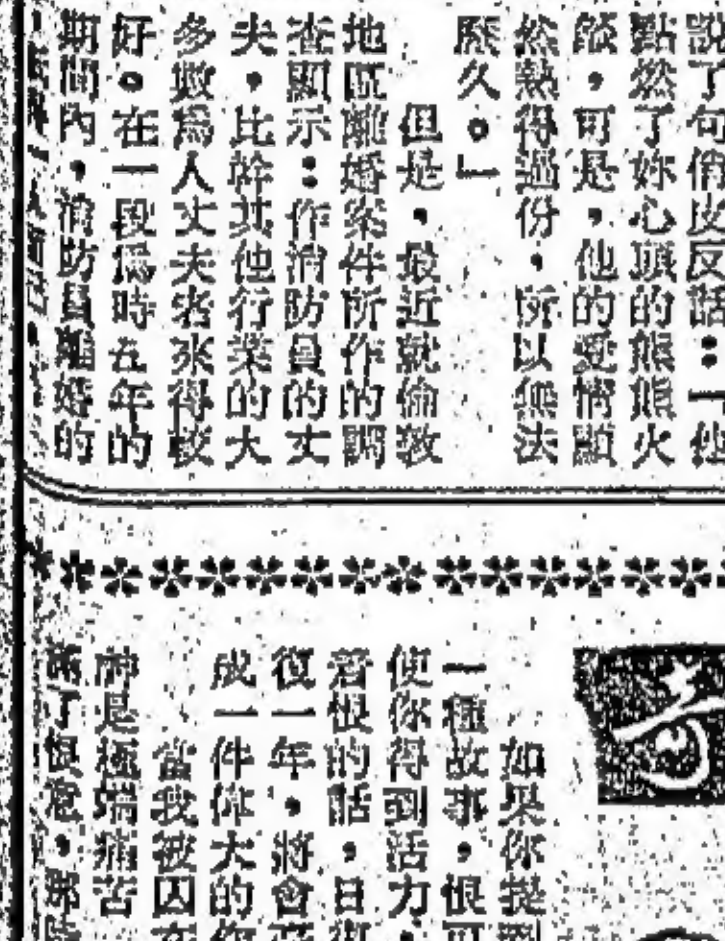 說了句俏皮反話：「他
點然了妳心頭的熊熊火
燄，可是，他的愛情顯
然熱得過份，所以無法
歷久。」
但是，最近就倫敦
地區離婚案件所作的調
查顯示：作消防員的丈
夫，比幹其他行業的大
多數爲人丈夫者來得較
好。在一段爲時五年的
期間內，消防員離婚的
奇
如果你提到
一種故事，恨可
使你得到活力，
着恨的話，日復
復一年，將會
成一件偉大的
當我被囚在
神是極端痛苦
滿了恨意，那